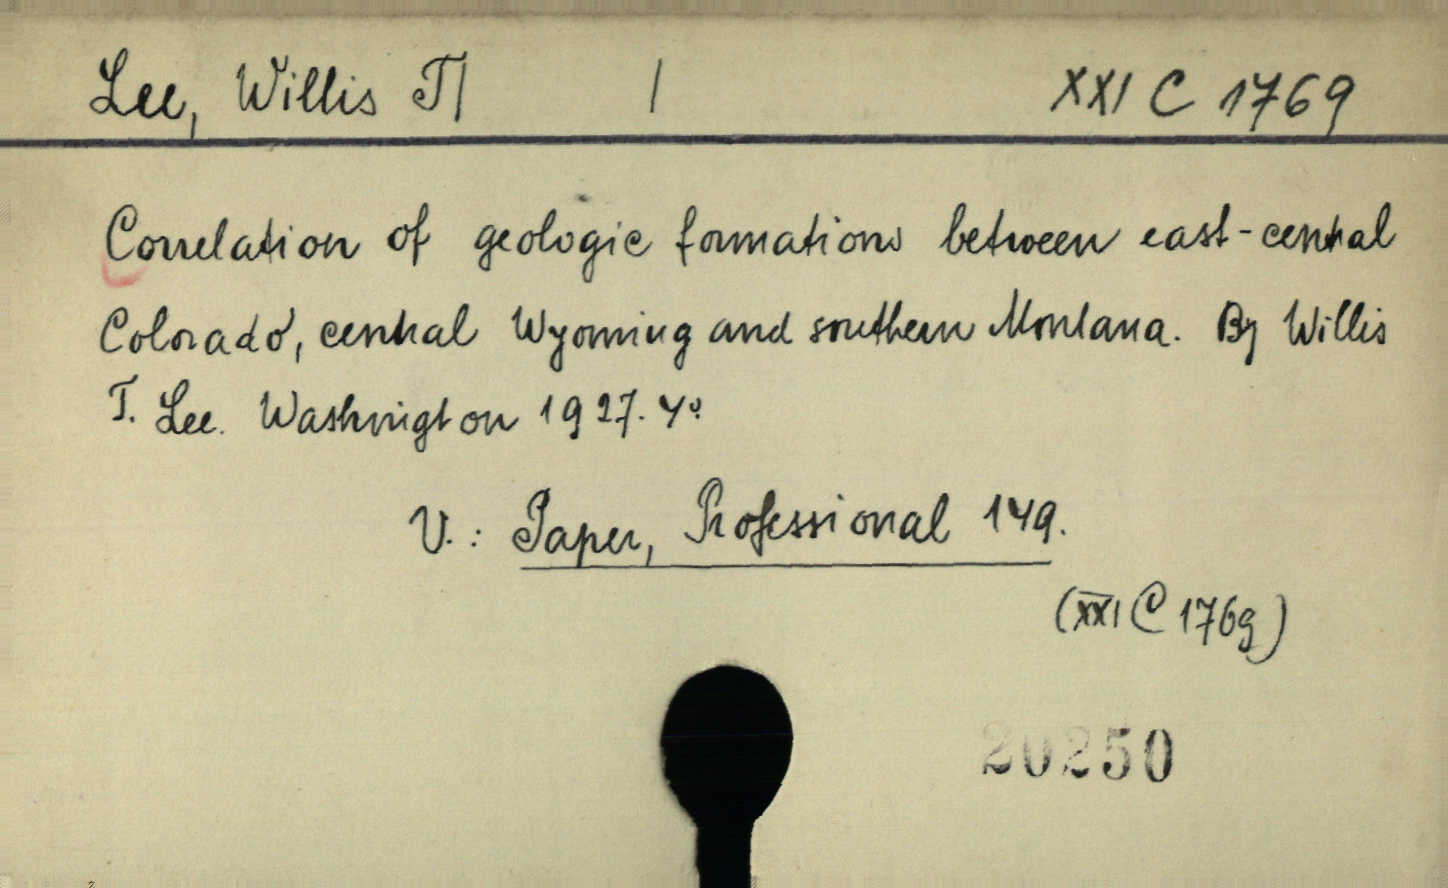 Lee, Willis T| | XXI C 1769
Correlation of geologic formations between east-central
Colorado, central Wyoming and southern Montana. By Willis
T. Lee. Washington 1927. 4º
V.: Paper, Professional 149.
(XXI C 1769)
20250